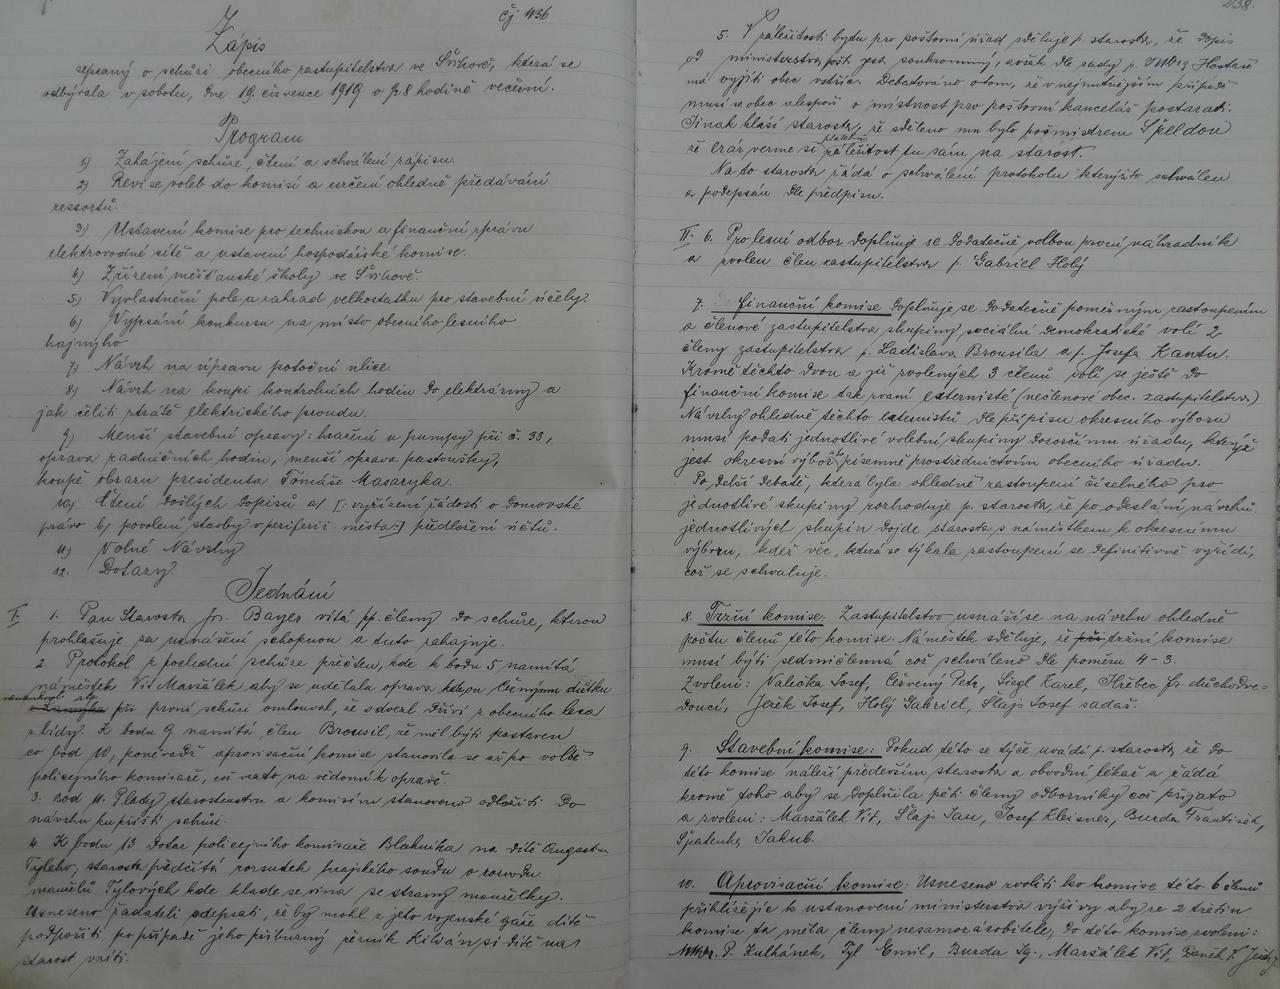 Čj 436
Zápis
sepsaný o schůzi obecního zastupitelstva ve Švihově, která se
odbývala v sobotu, dne 19. července 1919 o ½8 hodině večerní.
Program
1) Zahájení schůze, čtení a schválení zápisu.
2) Revise voleb do komisí a určení ohledně předávání
ressortů.
3) Ustavení komise pro technickou a finanční správu
elektrovodné sítě a ustavení hospodářské komise.
4) Zřízení měšťanské školy ve Švihově.
5) Vyvlastnění pole a zahrad velkostatku pro stavební účely.
6) Vypsání konkursu na místo obecního lesního
hajného
7) Návrh na úpravu potoční ulice
8) Návrh na koupi kontrolních hodin do elektrárny a
jak čeliti ztrátě elektrického proudu.
9) Menší stavební opravy: hražení u pumpy při č. 33,
oprava radničních hodin, menší oprava pastoušky,
koupě obrazu presidenta Tomáše Masaryka.
10) Čtení došlých dopisů a/ [: vyřízení žádosti o domovské
právo b/ povolení stavby v periferii města:] předložení účtů.
11) Volné Návrhy
12. Dotazy
Jednání
I. 1. Pan Starosta Jos. Bayer vítá pp. členy do schůze, kterou
prohlašuje za usnášení schopnou a tuto zahajuje.
2 Protokol z poslední schůze přečten, kde k bodu 5 namítá
náměstek Vít Maršálek aby se udělala oprava
při první schůzi omlouval, že odvezl dříví z obecního lesa
z bídy. K bodu 9 namítá člen Brousil, že měl býti postaven
co bod 10, poněvadž aprovisační komise stanovila se až po volbě
policejního komisaře, což vzato na vědomí k opravě.
3. Bod 11. Plady starostenstva a komisím stanoveno odložiti do
návrhu ku příští schůzi.
4. K bodu 13 Dotaz policejního komisaře Blahníka na dítě Augustina
Tyleho; starosta předčítá rozsudek krajského soudu o rozvodu
manželů Tylových kde klade se vina se strany manželky.
Usneseno žadateli odepsati, že by mohl z jeho vojenské gáže dítě
podpořiti po případě jeho příbuzný řezník Kilián si dítě na
starost vzíti.
438.
5. V záležitosti bytu pro poštovní úřad sděluje p. starosta, že dopis
od ministerstva pošt jest soukromný, avšak dle rady p. Hostaše
má vyjíti obec vstříc. Debatováno o tom, že v nejnutnějším případě
musí se obec alespoň o místnost pro poštovní kancelář postarati.
Jinak hlásí starosta, že sděleno mu bylo poštmistrem Špeldou
že erár vezme si záležitost tu sám na starost.
Na to starosta žádá o schválení protokolu kterýžto schválen
a podepsán dle předpisu.
II. 6. Pro lesní odbor doplňuje se dodatečně volbou první náhradník
a zvolen člen zastupitelstva p. Gabriel Holý
7. Finanční komise doplňuje se dodatečně poměrným zastoupením
a členové zastupitelstva skupiny sociální demokratické volí 2
členy zastupitelstva p. Ladislava Brousila a p. Josefa Kantu.
Kromě těchto dvou a již zvolených 3 členů volí se ještě do
finanční komise tak zvaní externisté (nečlenové obec. zastupitelstva)
Návrhy ohledně těchto externistů dle přípisu okresního výboru
musí podati jednotlivé volební skupiny dozorčímu úřadu, kterýž
jest okresní výbor písemně prostřednictvím obecního úřadu.
Po delší debatě, která byla ohledně zastoupení číselného pro
jednotlivé skupiny rozhoduje p. starosta, že po odeslání návrhů
jednotlivých skupin dojde starosta s náměstkem k okresnímu
výboru, kdež věc, která se týkala zastoupení se definitivně vyřídí,
což se schvaluje.
8. Tržní komise: Zastupitelstvo usnáší se na návrhu ohledně
počtu členů této komise. Náměstek sděluje, že při tržní komise
musí býti sedmičlenná což schváleno dle poměru 4-3.
Zvoleni: Valečka Josef, Červený Petr, Siegl Karel, Hřebec Fr. důchodve-
doucí, Jeřek Josef, Holý Gabriel, Šlajs Josef sadař.
9. Stavební komise: Pokud této se týče uvádí p. starosta že do
této komise náleží především starosta a obvodní lékař a žádá
kromě toho aby se doplnila pěti členy odborníky což přijato
a zvoleni: Maršálek Vít, Šlajs Jan, Josef Kleisner, Burda František,
Špalenka Jakub.
10. Aprovisační komise: Usneseno zvoliti ko komise této 6 členů
přihlížejíc k ustanovení ministerstva výživy aby ze 2 třetin
komise ta měla členy nesamozásobitele; do této komise zvoleni:
P. Kulhánek, Tyl Emil, Burda Ig., Maršálek Vít, Daněk V.